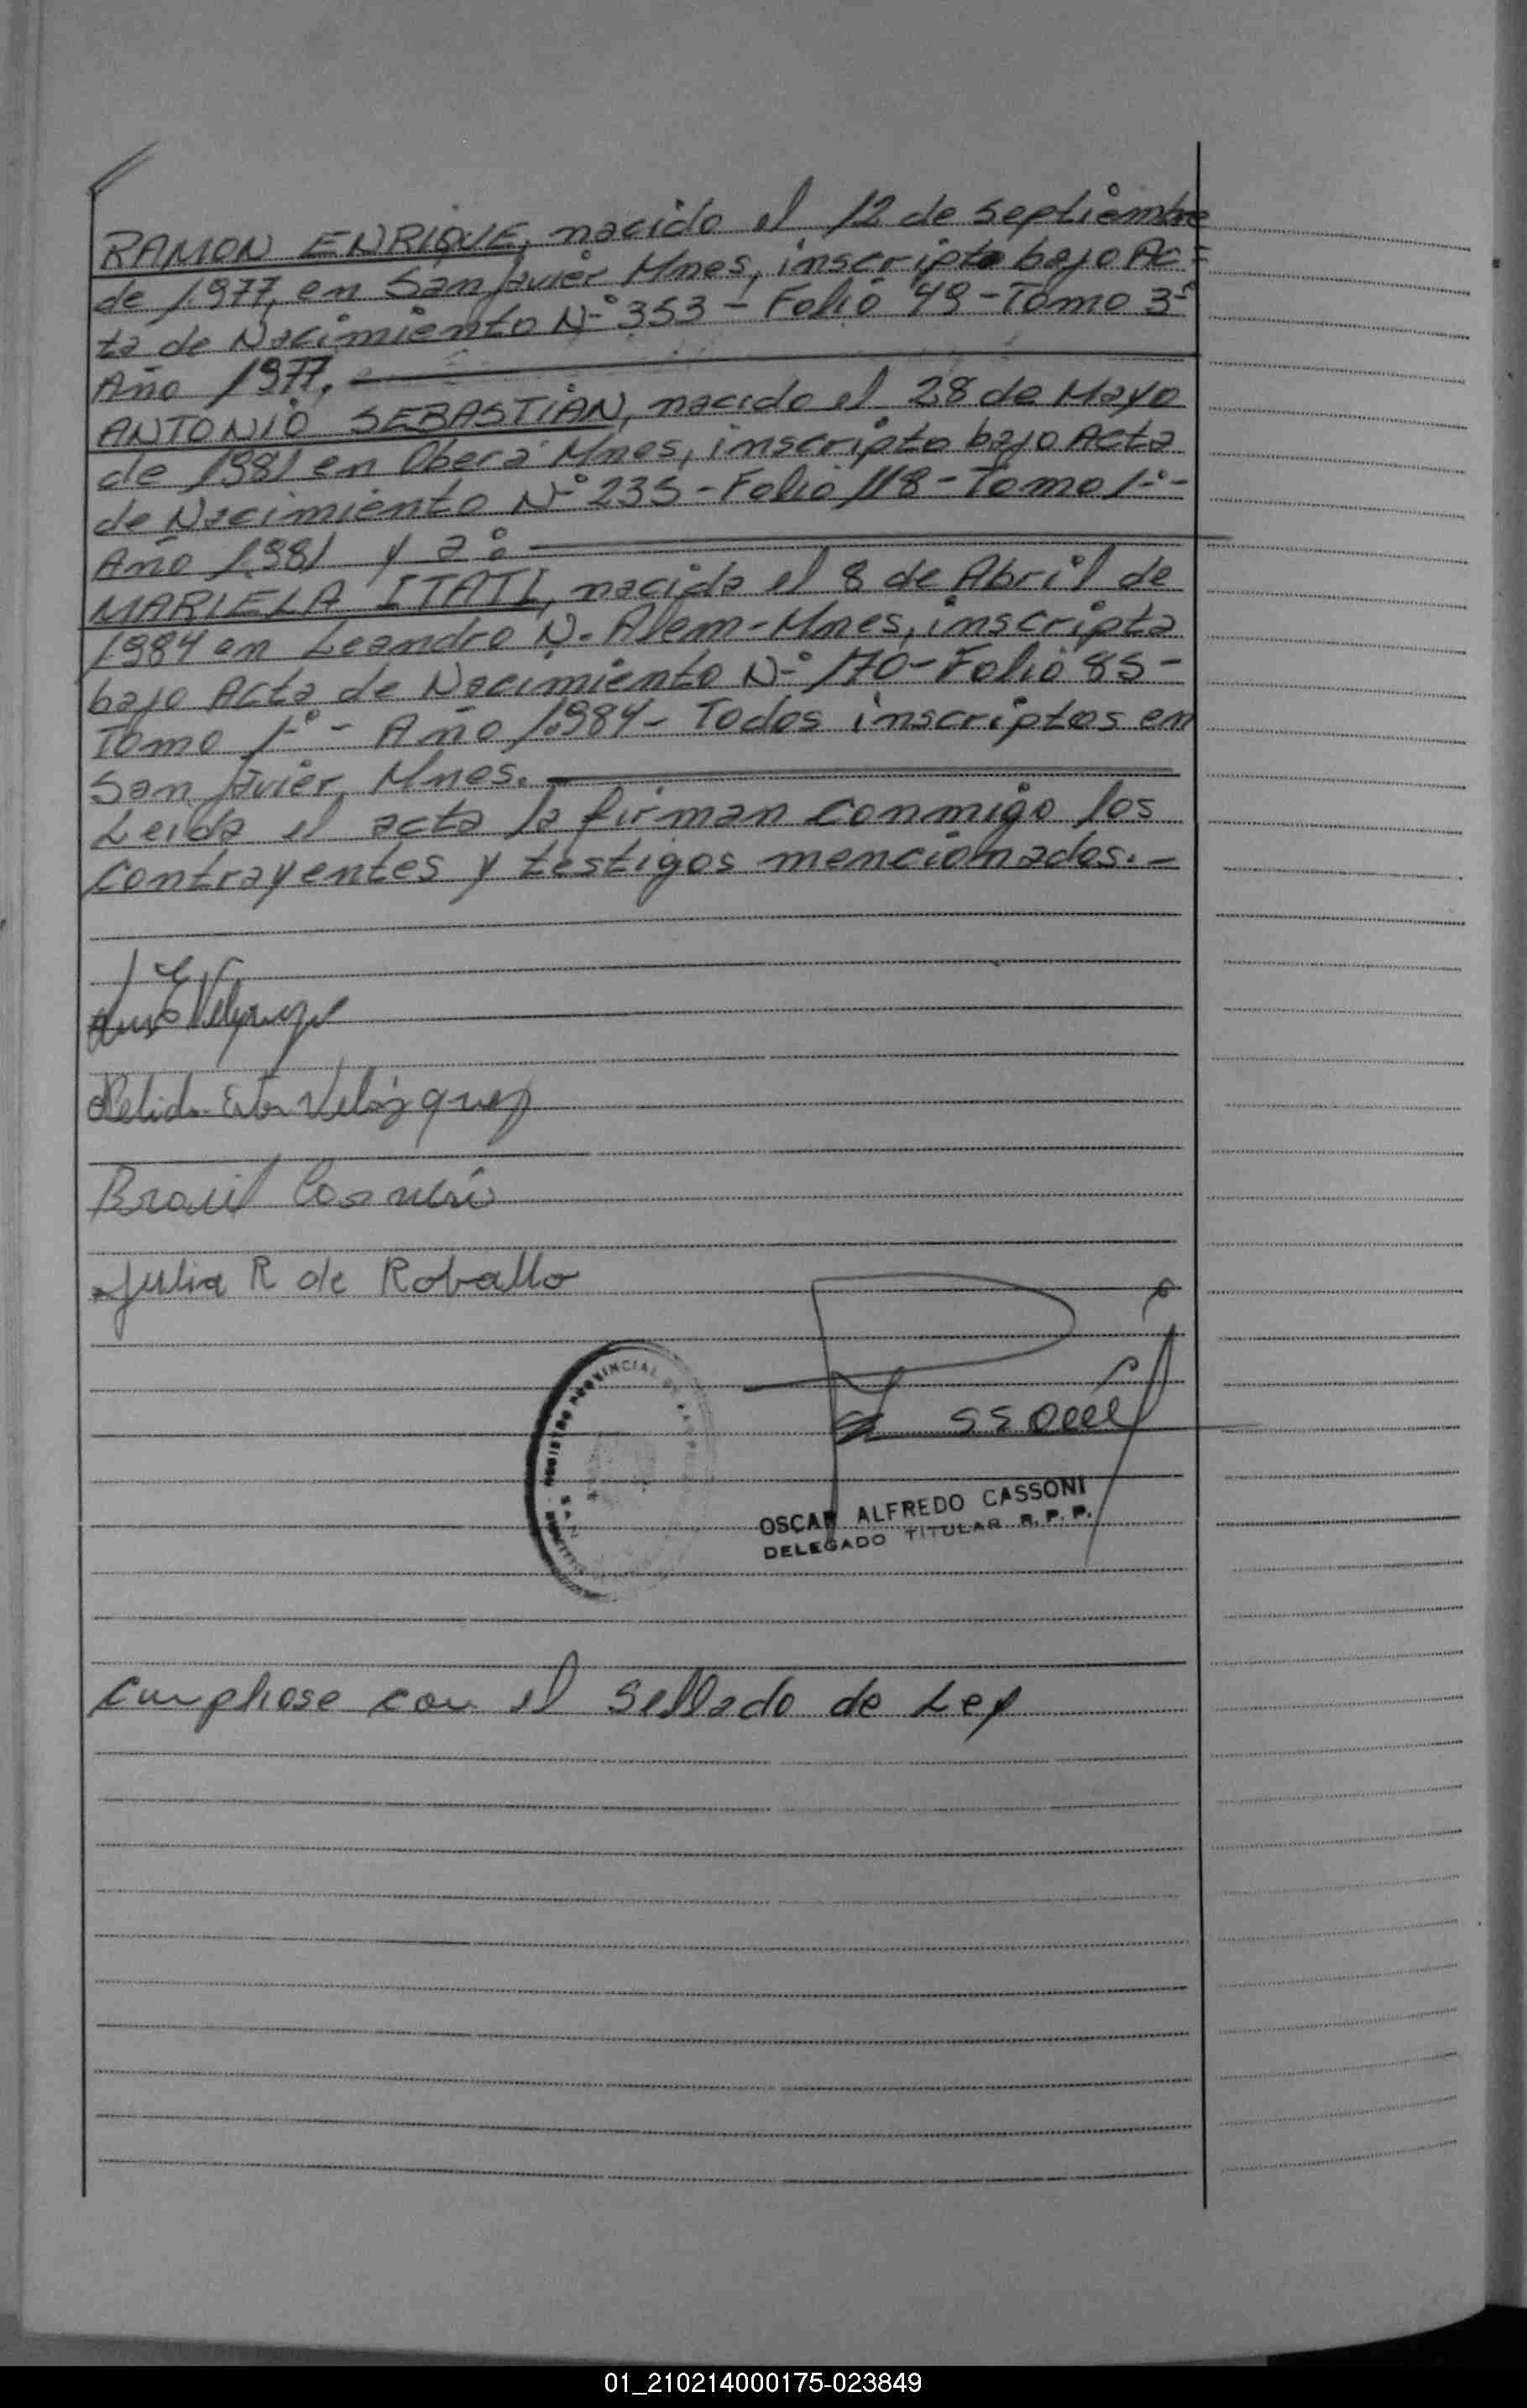 RAMON ENRIQUE, nacido el 12 de Septiembre
de 1.977, en San Javier Mnes, inscripto bajo Ac=
ta de Nacimiento N-° 353 - Folio 49 - Tomo 3-°
Año 1977.
ANTONIO SEBASTIAN, nacido el 28 de Mayo
de 1981 en Oberá Mnes, inscripto bajo Acta
de Nacimiento N-° 235 - Folio 118 - Tomo 1-° -
Año 1.981 y a°
MARIELA ITATI, nacida el 8 de Abril de
1984 en Leandro N. Alem - Mnes, inscripta
bajo Acta de Nacimiento N-° 170 - Folio 85 -
Tomo 1-° - Año 1.984 - Todos inscriptos en
San Javier, Mnes.
Leida el acta la firman conmigo los
contrayentes y testigos mencionados. -
Velázquez
Julia R de Roballo
REGISTRO PROVINCIAL
OSCAR ALFREDO CASSONI
DELEGADO TITULAR R. P. P.
Cumplase con el Sellado de Ley
01_210214000175-023849